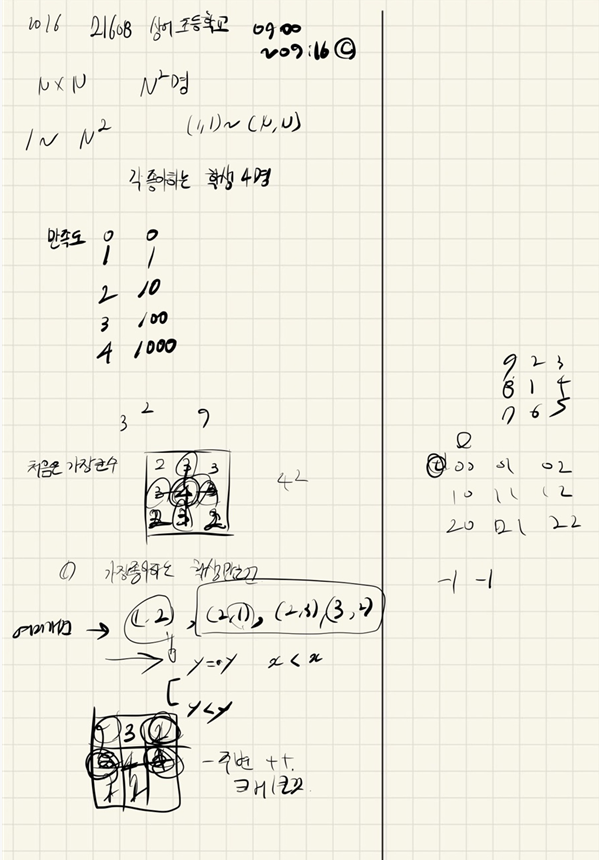 2016 21608 상어 초등학교 09:00
~09:16 ⓒ
N×N N²명
1~ N² (1,1)~(N,N)
각 좋아하는 학생 4명
만족도 0 0
1 1
2 10
3 100
4 1000
3 2 9
처음은
2 3 3
3 4 3
2 3 2
4 2
① 가장좋아하는
(1,2), (2,1), (2,3), (3,2)
→ y=y x<x
y<y
3 2
4
1 2
- 주변 ++
9 2 3
8 1 4
7 6 5
00 01 02
10 11 12
20 21 22
-1 -1